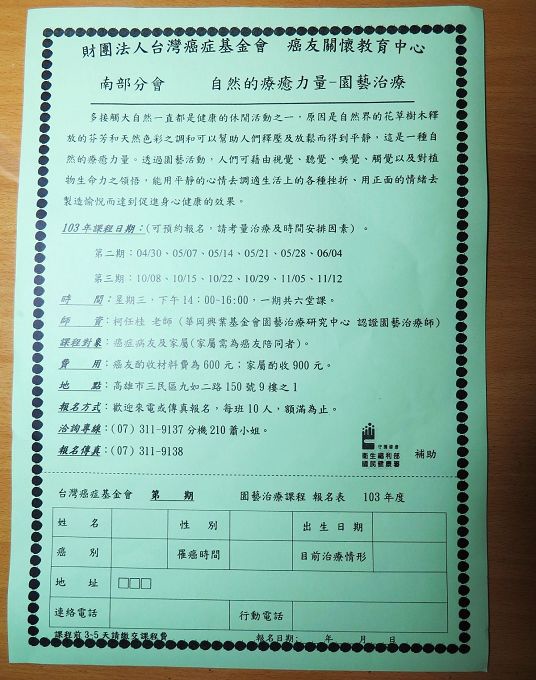 財團法人台灣癌症基金會　癌友關懷教育中心
南部分會　自然的療癒力量-園藝治療
多接觸大自然一直都是健康的休閒活動之一，原因是自然界的花草樹木釋
放的芬芳和天然色彩之調和可以幫助人們釋壓及放鬆而得到平靜，這是一種自
然的療癒力量。透過園藝活動，人們可藉由視覺、聽覺、嗅覺、觸覺以及對植
物生命力之領悟，能用平靜的心情去調適生活上的各種挫折、用正面的情緒去
製造愉悅而達到促進身心健康的效果。
103年課程日期：(可預約報名，請考量治療及時間安排因素)。
第二期：04/30、05/07、05/14、05/21、05/28、06/04
第三期：10/08、10/15、10/22、10/29、11/05、11/12
時　間：星期三，下午14：00-16:00，一期共六堂課。
師　資：柯任桂 老師 (華岡興業基金會園藝治療研究中心 認證園藝治療師)
課程對象：癌症病友及家屬(家屬需為癌友陪同者)。
費　用：癌友酌收材料費為600元；家屬酌收900元。
地　點：高雄市三民區九如二路150號9樓之1
報名方式：歡迎來電或傳真報名，每班10人，額滿為止。
洽詢專線：(07) 311-9137分機210蕭小姐。
報名傳真：(07) 311-9138
衛生福利部
國民健康署
補助
台灣癌症基金會　第　期　園藝治療課程 報名表　103年度
姓　名　性　別　出生日期
癌　別　罹癌時間　目前治療情形
地　址　□□□
連絡電話　行動電話
課程前3-5天請繳交課程費　報名日期：　年　月　日